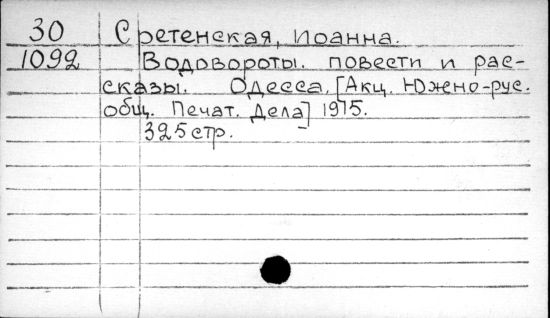 30 Сретенская, Иоанна.
1092 Водовороты. повести и рас-
сказы. Одесса, [Акц. Южно-рус.
общ. Печат. Дела] 1915.
325 стр.